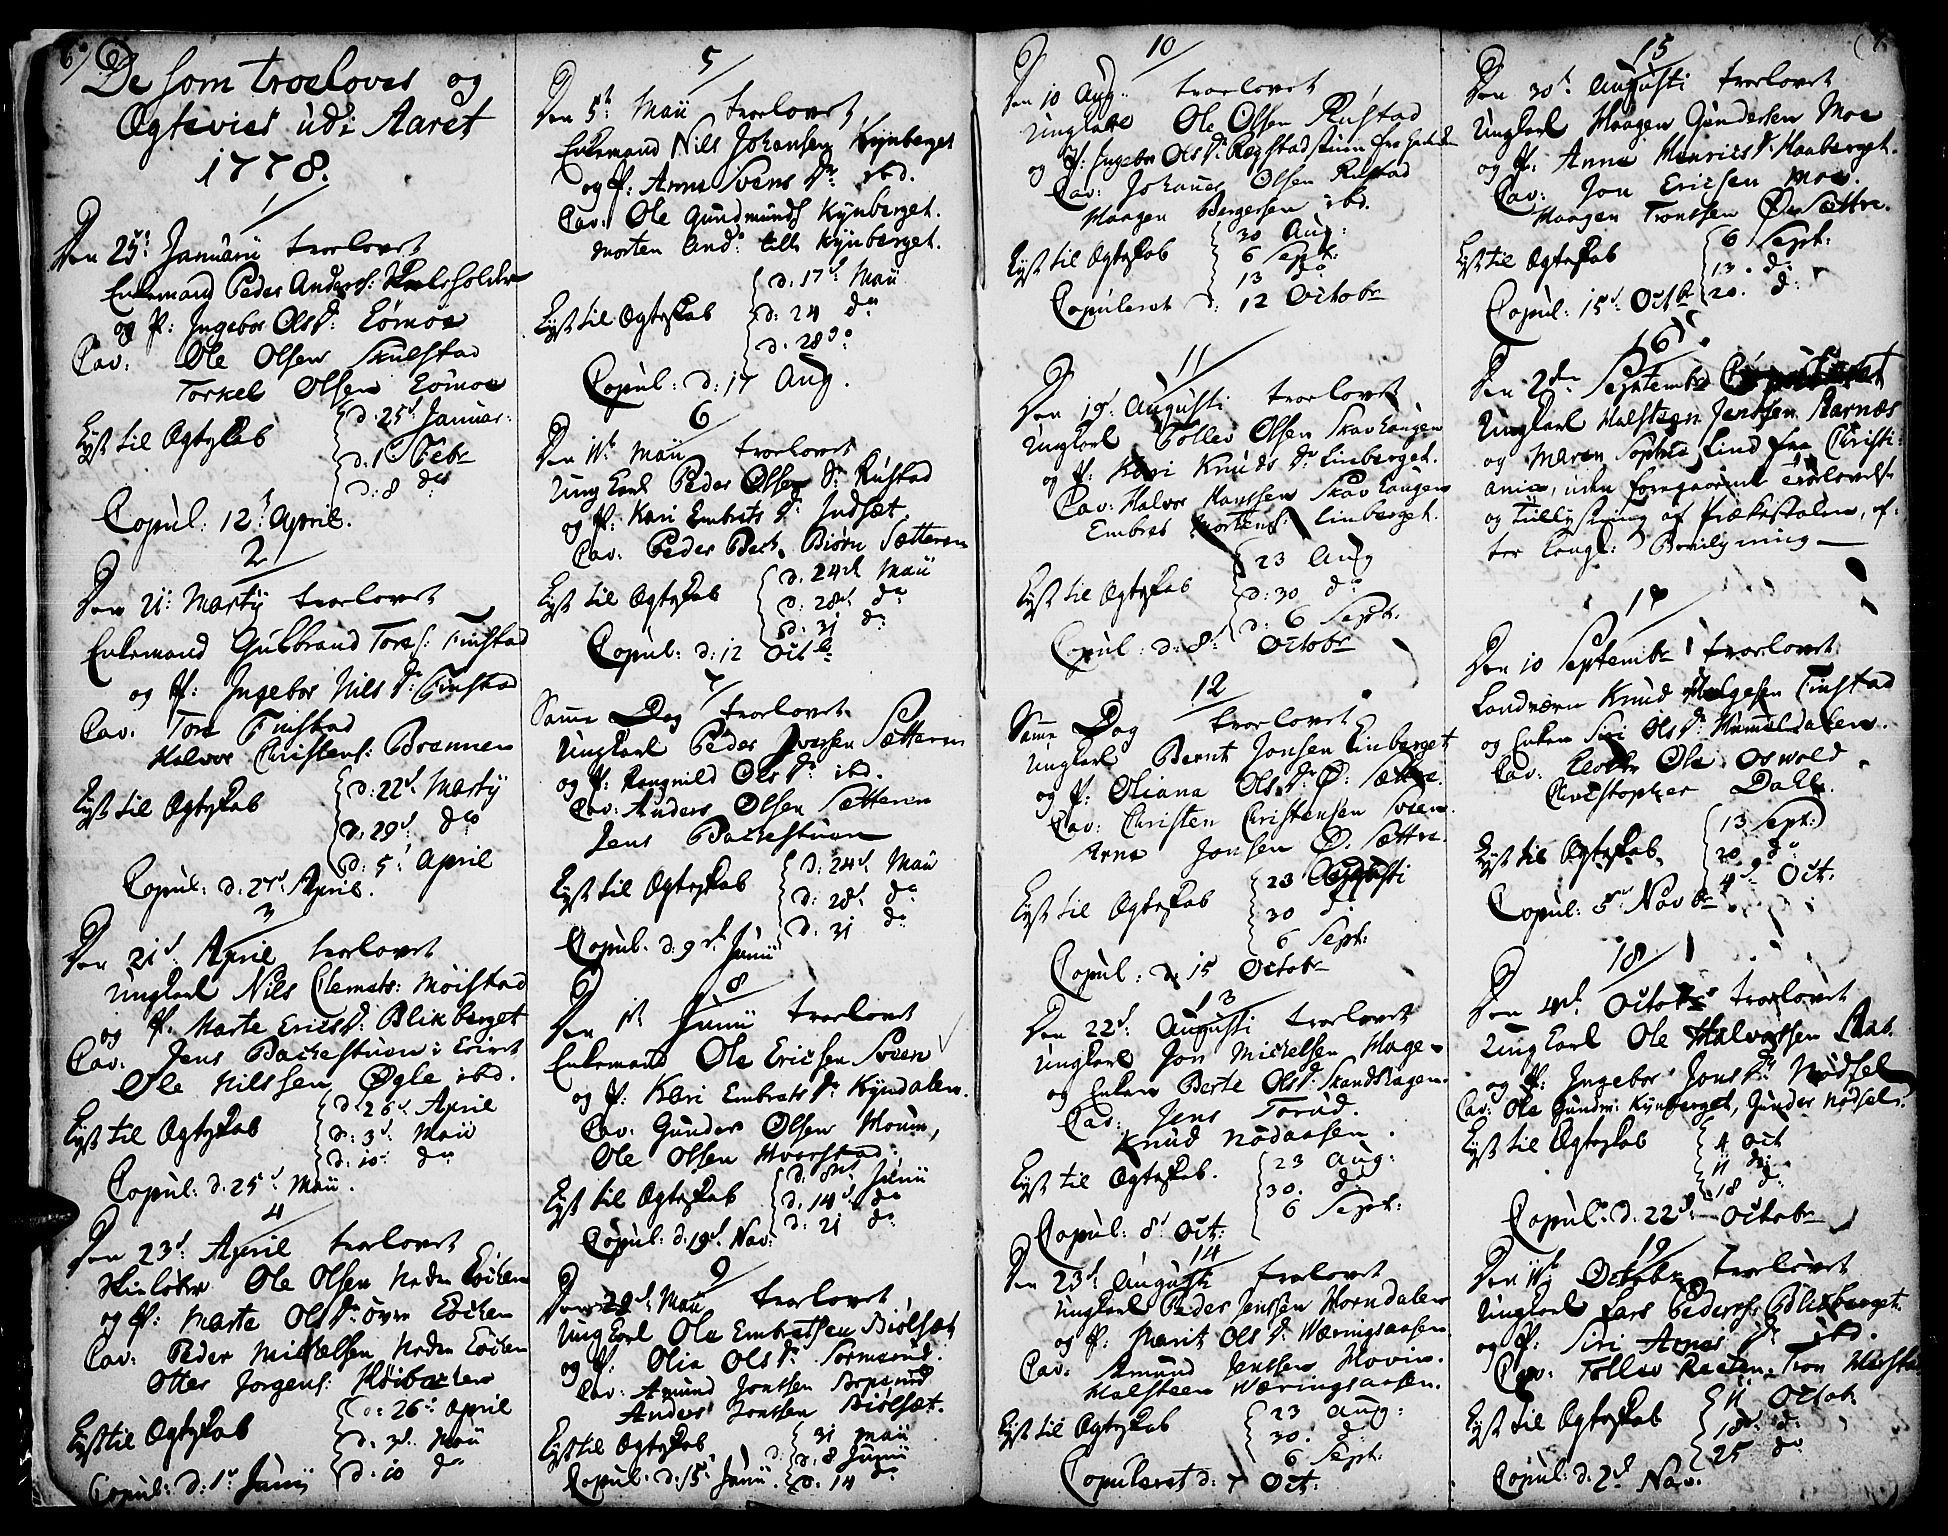 6)
De som troeloves og
Ægtevies udi Aaret
1778.
1
Den 25d Januarii troelovet
Enkemand Peder Anders:
og P: Ingebor Olsd: Lömoe
Cav: Ole Olsen Skulstad
Torkel Olsen Lömoe
Lyst til Ægteskab d: 25d Januar:
d: 1 Febr
d: 8 do
Copul: 12t April.
2
Den 21: Martij troelovet
Enkemand Gulbrand Tores: Finstad
og P: Ingebor Nils Dr Finstad
Cav: Tore Finstad
Halvor Christens: Brennen
Lyst til Ægteskab d: 22d Martij
d: 29d do
d: 5t April
Copul: d: 27d April.
3
Den 21d April troelovet
Ungkarl Nils Clemets: Moistad
og P: Marte Erics Dr Blikberget
Cav: Jens Backestuen i Eltvet
Ole Nilssen Øgle ibd.
Lyst til Ægteskab d: 26d April
d: 3d Maii
d: 10 do
Copul: d: 25d Maii.
4
Den 23d April troelovet
Ole Olsen Neden
og P: Marte Ols Dr øvre
Cav: Peder Michelsen Neden
Otter Jorgens:
Lyst til Ægteskab d: 26: April
d: 3d Maii
d: 10 do
Copul: d: 1t Junij
5
Den 5t Maii troelovet
Enkemand Nils Johansen Kynberget
og P: Anne Svens Dr ibd.
Cav: Ole Gundmunds Kynberget.
Morten And: lille Kynberget.
Lyst til Ægteskab d: 17d Maii
d: 24 do
d: 28 do
Copul: d: 17 Aug.
6
Den 11t Maii troelovet
Ung Karl Peder Olsen Dr Rustad
og P: Kari Embrets Dr Indset.
Cav: Peder Bech, Biörn Sætteren
Lyst til Ægteskab d: 24d Maii
d: 28d do
d: 31 do
Copul: d: 12 Octb
7
Samme Dag troelovet
Ungkarl Peder Iversen Sætteren
og P: Rangnild Ols Dr ibd.
Cav: Anders Olsen Sætteren
Jens Backestuen
Lyst til Ægteskab d: 24d Maii
d: 28d do
d: 31 do
Copul: d: 9d Junii
8
Den 1t Junii troelovet
Enkemand Ole Ericsen Sveen
og P: Kari Embrets Dr Kyndalen.
Cav: Gunder Olsen Moum,
Ole Olsen Hvarstad
Lyst til Ægteskab d: 8d Junii
d: 14d do
d: 21 do
Copul: d: 19d Nov:
9
Den 29d Maii troelovet
Ung Karl Ole Embretsen Biölset
og P: Olia Ols Dr Sormerud.
Cav: Amund Jonssen Sormerud
Anders Jonssen Biölset.
Lyst til Ægteskab d: 31 Maii
d: 8 Junii
d: 14 do
Copul: d: 15t Junii
10
Den 10 Aug: troelovet
Ungkarl Ole Olsen Rustad
og P: Ingebr Ols Dr Rogstad
Cav: Johannes Olsen Rustad
Haagen Bergersen ibd.
Lyst til Ægteskab 30 Aug:
6 Sept:
13 do
Copuleret d: 12 Octobr
11
Den 19d Augusti troelovet
Ungkarl Tollev Olsen Skavhaugen
og P: Kari Knuds Dr Linberget.
Cav: Halvor Hanssen Skavhaugen
Embret Mortens: Linberget.
Lyst til Ægteskab 23 Aug
d: 30 do
d: 6 Sept:
Copul: d: 8d Octobr
12
Samme Dag troelovet
Ungkarl Bernt Jonsen Linberget
og P: Oliana Ols Dr Ø: Sættre.
Cav: Christen Christensen Sveen.
Arne Jonsen Ø. Sættre.
Lyst til Ægteskab 23 Augusti
30 d:
6 Sept:
Copul: d: 15 Octobr
13
Den 22d Augusti troelovet
Ungkarl Jon Michelsen Hagen
og Enken Berte Ols Dr Skandshagen.
Cav: Jens Torud.
Knud Nodaasen.
Lyst til Ægteskab. 23 Aug:
30. d:
6 Sept:
Copul: 8d Oct:
14
Den 23d Augusti troelovet
Ungkarl Peder Jenssen Horndalen
og P: Marit Ols Dr Wæringsaasen
Cav: Amund Jenssen Hovin.
Halsteen Wæringsaasen.
Lyst til Ægteskab 23 Aug:
30. d:
6 Sept:
Copuleret d: 7 Oct:
15
Den 30t Augusti troelovet
Ungkarl Haagen Gundersen Moe
og P: Anne Henrics Dr Haaberget.
Cav: Jon Ericsen Moe.
Haagen Tronssen Ø. Sættre.
Lyst til Ægteskab 6 Sept:
13. do
20. d:
Copul: 15d Octb
16
Den 2den Septembr
Ungkarl Halsteen Jenssen Aarnæs
og Maren Sophia Lind fra Christi-
ania, uden foregaaende Troelovelse
og Tillysning af Prækestolen, ef-
ter Kongl: Bevilgning
17
Den 10 Septembr troelovet
Landværn Knud Helgesen Finstad
og Enken Siri Ols Dr Hummeldalen.
Cav: Ole Oswold
Christopher Dall.
Lyst til Ægteskab. 13 Sept:
20 do
4d Oct:
Copul: 5d Novbr
18
Den 4d Octobr troelovet
Ung Karl Ole Halvorsen
og P: Ingebor Jons Dr Nödsel
Cav: Ole Gundm: Kynberget, Gunder Nödsel.
Lyst til Ægteskab 4 Oct
11 do
18 d:
Copul: d: 22d Octobr
19
Den 11t Octobr troelovet
Ungkarl Lars Pederss: Blikberget.
og P: Siri Arnes Dr ibd.
Cav: Tollev Reeten, Tron
Lyst til Ægteskab 11 Octob:
18d d:
25 do
Copul: d: 2d Nov: